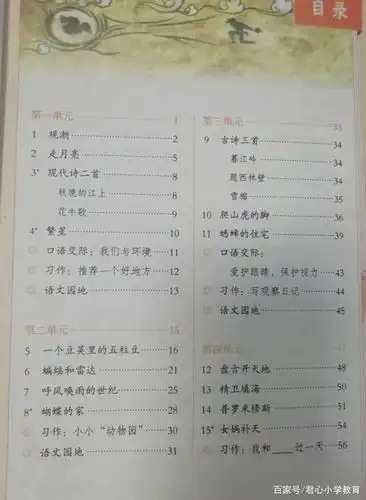 目录
第一单元 1
1 观潮 2
2 走月亮 5
3* 现代诗二首 8
秋晚的江上 8
花牛歌 9
4* 繁星 10
口语交际：我们与环境 11
习作：推荐一个好地方 12
语文园地 13
第二单元 15
5 一个豆荚里的五粒豆 16
6 蝙蝠和雷达 21
7 呼风唤雨的世纪 25
8* 蝴蝶的家 28
习作：小小“动物园” 30
语文园地 31
第三单元 33
9 古诗三首 34
暮江吟 34
题西林壁 34
雪梅 35
10 爬山虎的脚 36
11 蟋蟀的住宅 39
口语交际：
爱护眼睛，保护视力 43
习作：写观察日记 44
语文园地 45
第四单元 47
12 盘古开天地 48
13 精卫填海 50
14 普罗米修斯 51
15* 女娲补天 54
习作：我和____过一天 56
百家号/君心小学教育